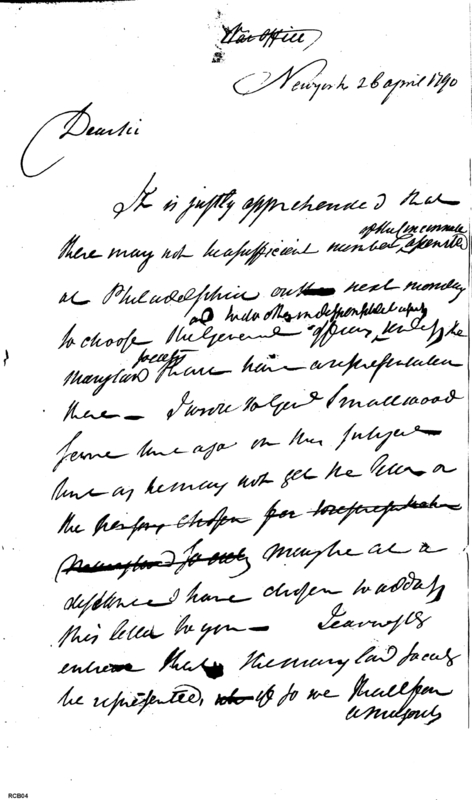 War Office
New york 26 april 1790
Dear sir
It is justly apprehended that
of the Cincinnati
there may not be a sufficient number, assembled
at Philadelphia on next monday
and to do other indispensible
to choose the General officers, unless the
society
maryland shall have a representation
there — I wrote to Genl Smallwood
some time ago on this subject
but as he may not get the letter or
the persons chosen for to represent the
Maryland Society may be at a
distance I have chosen to address
this letter to you — I earnestly
entreat that the maryland society
be represented, if so we shall